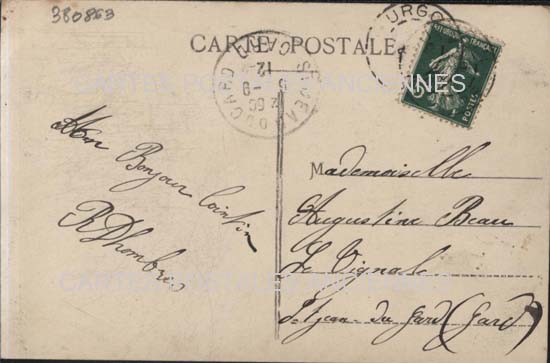 380863
CARTE POSTALE
CARTES POSTALES ANCIENNES
URGO
RÉPUBLIQUE FRANÇAISE
POSTES
ST JEAN DU GARD GARD
12
5 -9
Mon Bonjour lointain
R Dhombres
Mademoiselle
Augustine Beau
Le Vignale
St Jean-du Gard (Gard)
CARTES POSTALES ANCIENNES